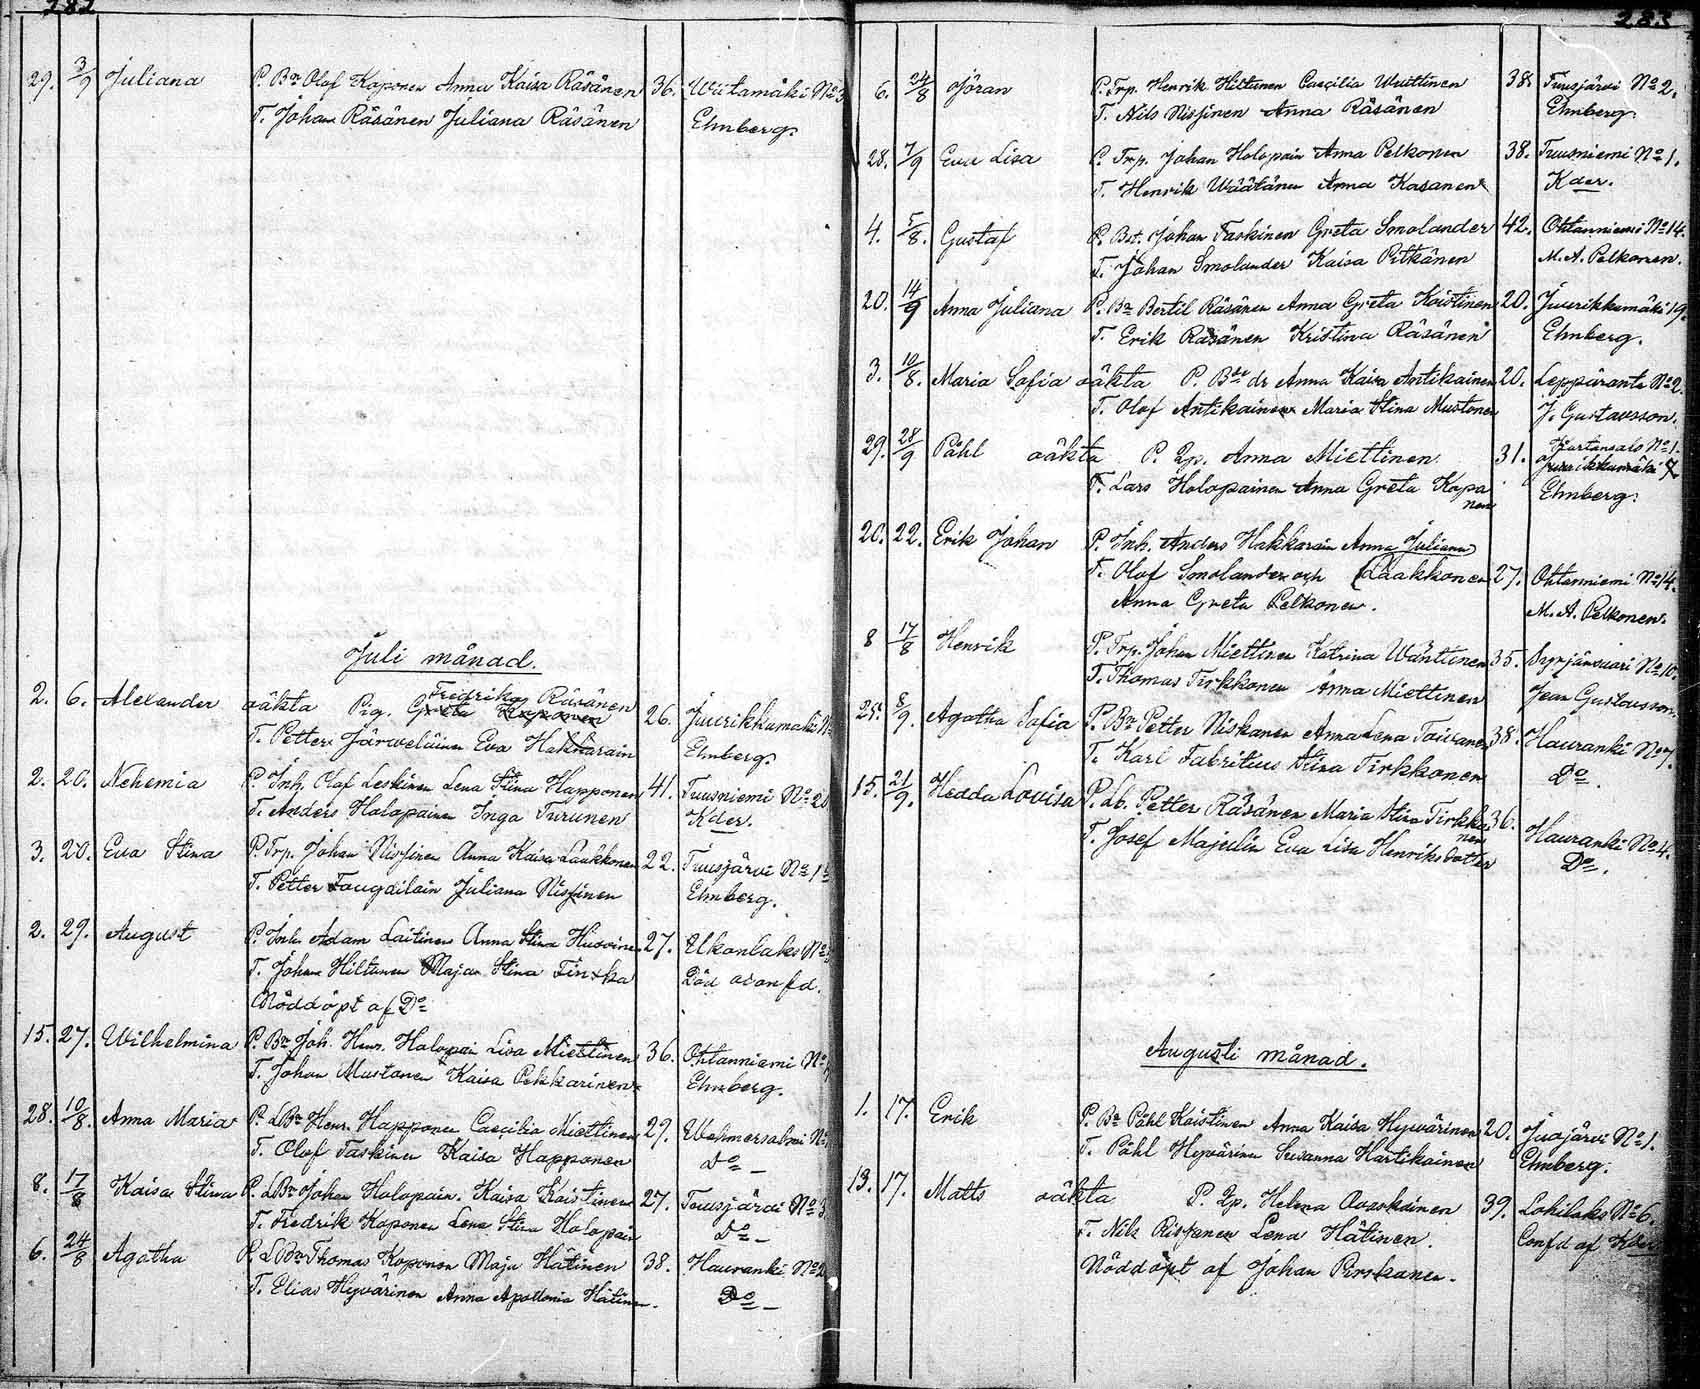 282
29. 3/9 Juliana P. Bn Olof Koponen Anna Kaisa Räsänen 36. Wiitamäki No 3
T. Johan Räsänen Juliana Räsänen Ehnberg.
Juli månad.
Fredrika Räsänen
2. 6. Alexander oäkta Pig. Greta Koponen 26. Juurikkamäki No
T. Petter Järveläinen Eva Hakkarain Ehnberg.
2. 20. Nehemia P. Inh. Olof Leskinen Lena Stina Happonen 41. Tuusniemi No 20
T. Anders Holopainen Inga Turunen Kder.
3. 20. Eva Stina P. Trp. Johan Nissinen Anna Kaisa Laukkonen 22. Tuusjärvi No 1
T. Petter Juliana Nissinen Ehnberg.
2. 29. August P. Inh. Adam Laitinen Anna Stina Husoinen 27. Ukonlaks No
T. Johan Hiltunen Maja Stina Finska Död oconfd.
Nöddöpt af Do
15. 27. Wilhelmina P. Bn Joh. Henr. Holopain Lisa Miettinen 36. Ohtanniemi No
T. Johan Mustonen Kaisa Pekkarinen Ehnberg.
28. 10/8. Anna Maria P. LBn Henr. Happonen Caecilia Miettinen 29. Wehmersalmi No
T. Olof Taskinen Kaisa Happonen Do
8. 17/8 Kaisa Stina P. LBn Johan Holopain. Kaisa Koistinen 27. Tuusjärvi No 3
T. Fredrik Koponen Lena Stina Holopain Do
6. 24/8 Agatha P. LBn Thomas Koponen Maja Hätinen 38. Hauranki No 2
T. Elias Hyvärinen Anna Apollonia Hätinen. Do
283
6. 24/8 Jöran P. Trp. Henrik Hiltunen Caecilia Wäittinen 38. Tuusjärvi No 2.
T. Nils Nissinen Anna Räsänen Ehnberg.
28. 7/9 Eva Lisa P. Trp. Johan Holopain Anna Pelkonen 38. Tuusniemi No 1.
T. Henrik Wäätänen Anna Kasanen Kder.
4. 5/8. Gustaf P. Bst. Johan Taskinen Greta Smolander 42. Ohtanniemi No 14.
T. Johan Smolander Kaisa Pitkänen M. A. Pelkonen.
20. 14/9 Anna Juliana P. Bn Bertil Räsänen Anna Greta Koistinen 20. Juurikkamäki 19.
T. Erik Räsänen Kristina Räsänen Ehnberg.
3. 10/8. Maria Sofia oäkta P. Bde dr Anna Kaisa Antikainen 20. Leppäranta No 2.
T. Olof Antikainen Maria Stina Mustonen J. Gustavsson.
29. 28/9 Påhl oäkta P. Qp. Anna Miettinen 31. No 1.
Juurikkamäki
T. Lars Holopainen Anna Greta Kopa Ehnberg.
nen
20. 22. Erik Johan P. Inh. Anders Hakkarain Anna Juliana
T. Olof Smolander och (Laakkonen 27. Ohtanniemi No 14.
Anna Greta Pelkonen. M. A. Pelkonen.
8 17/8 Henrik P. Trp. Johan Miettinen Katrina Wänttinen 35. No 10.
T. Thomas Tirkkonen Anna Miettinen Jean Gustavsson.
25. 8/9. Agatha Sofia P. Bn Petter Niskanen Anna Lena Toivanen 38. Hauranki No 7.
T. Karl Fabritius Stina Tirkkonen Do.
15. 21/9. Hedda Lovisa P. Lb. Petter Räsänen Maria Stina Tirkko 36. Hauranki No 4.
nen
T. Josef Majelin Eva Lisa Henriks dotter Do.
Augusti månad.
1. 17. Erik P. Bn Påhl Koistinen Anna Kaisa Hyvärinen 20. Juojärvi No 1.
T. Påhl Hyvärinen Susanna Hartikainen Ehnberg.
13. 17. Matts oäkta P. Qp. Helena Ovaskainen 39. Lohilaks No 6.
T. Nils Rissanen Lena Hätinen. Confd af Kder
Nöddöpt af Johan Pirskanen.